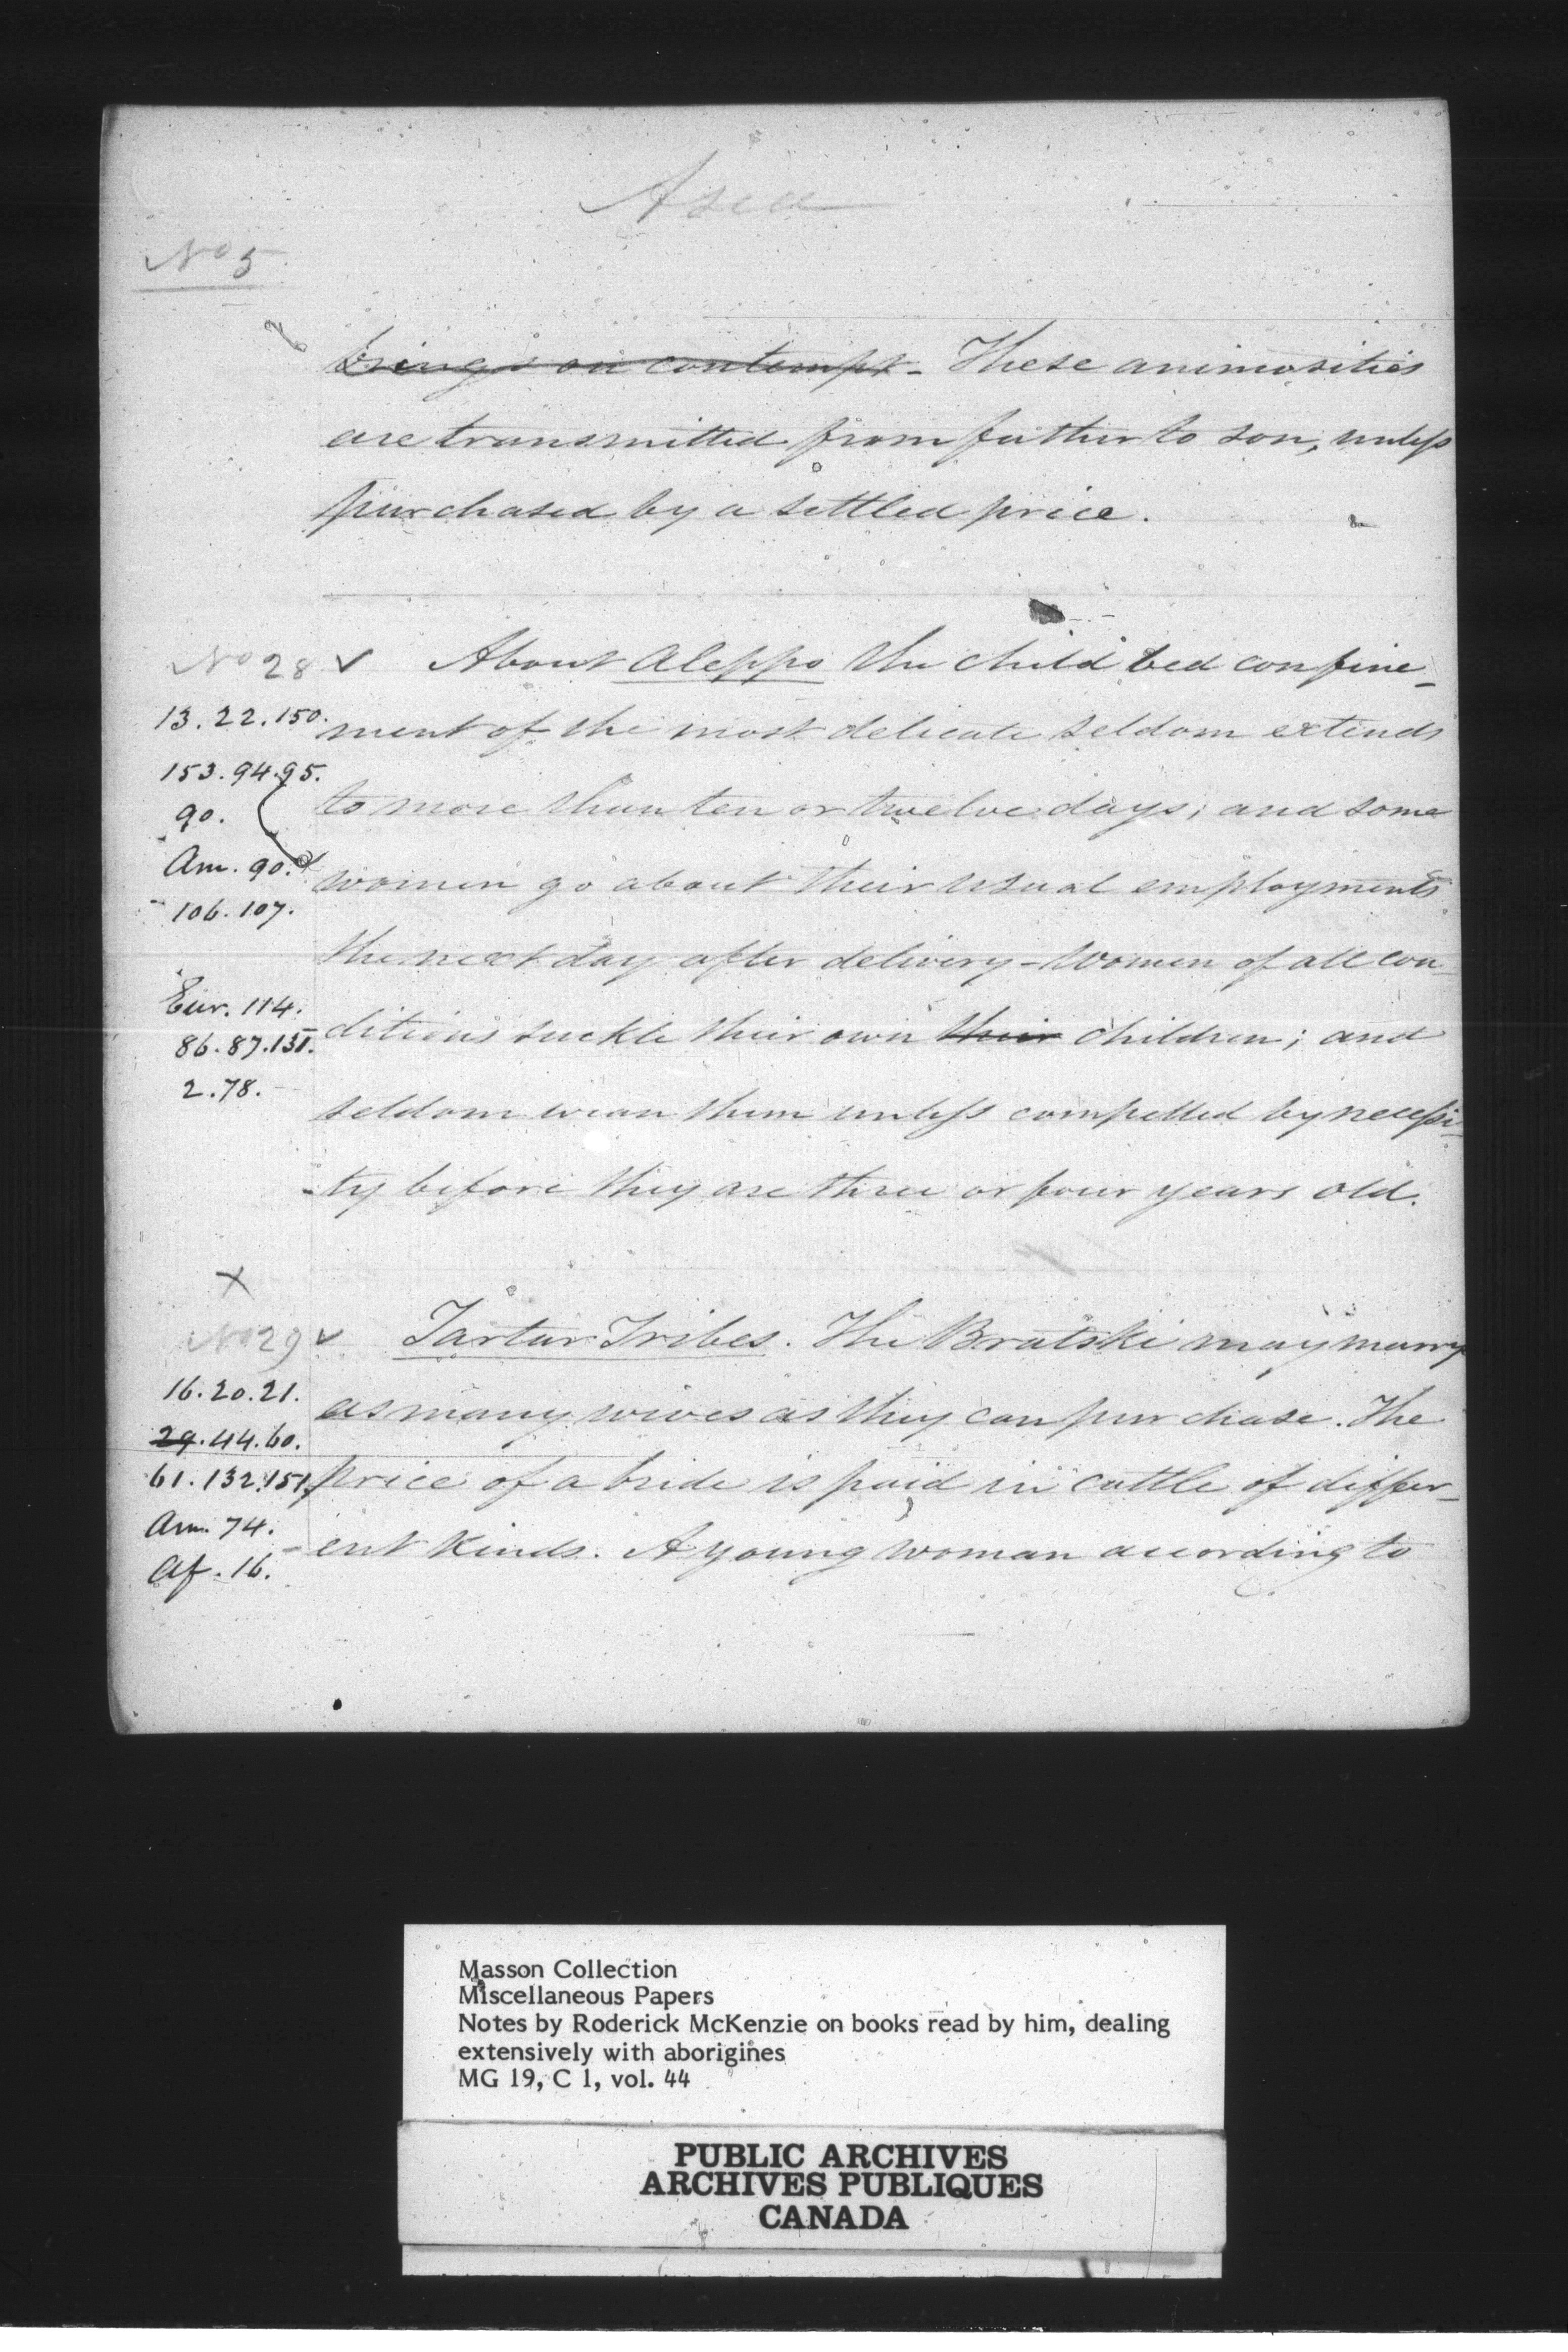 Asia
No 5
~~brings on contempt~~ - These animosities
are transmitted from father to son, unless
purchased by a settled price.
No 28 ✓ About Aleppo the child bed confine-
13.22.150. ment of the most delicate seldom extends
153.94.95.
90. to more than ten or twelve days; and some
Am. 90. women go about their usual employments
106.107.
the next day after delivery - Women of all con-
Eur. 114.
86.87.131. ditions suckle their own ~~their~~ children; and
2.78.
seldom wean them unless compelled by necessi-
-ty before they are three or four years old.
X
No 29 ✓ Tartar Tribes. The Bratski may marry
16.20.21. as many wives as they can purchase. The
~~29~~.44.60.
61.132.151. price of a bride is paid in cattle of differ-
Am. 74.
-ent kinds. A young woman according to
Af. 16.
Masson Collection
Miscellaneous Papers
Notes by Roderick McKenzie on books read by him, dealing
extensively with aborigines
MG 19, C 1, vol. 44
PUBLIC ARCHIVES
ARCHIVES PUBLIQUES
CANADA